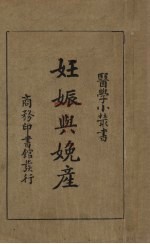 醫學小叢書
妊娠與娩產
商務印書館發行